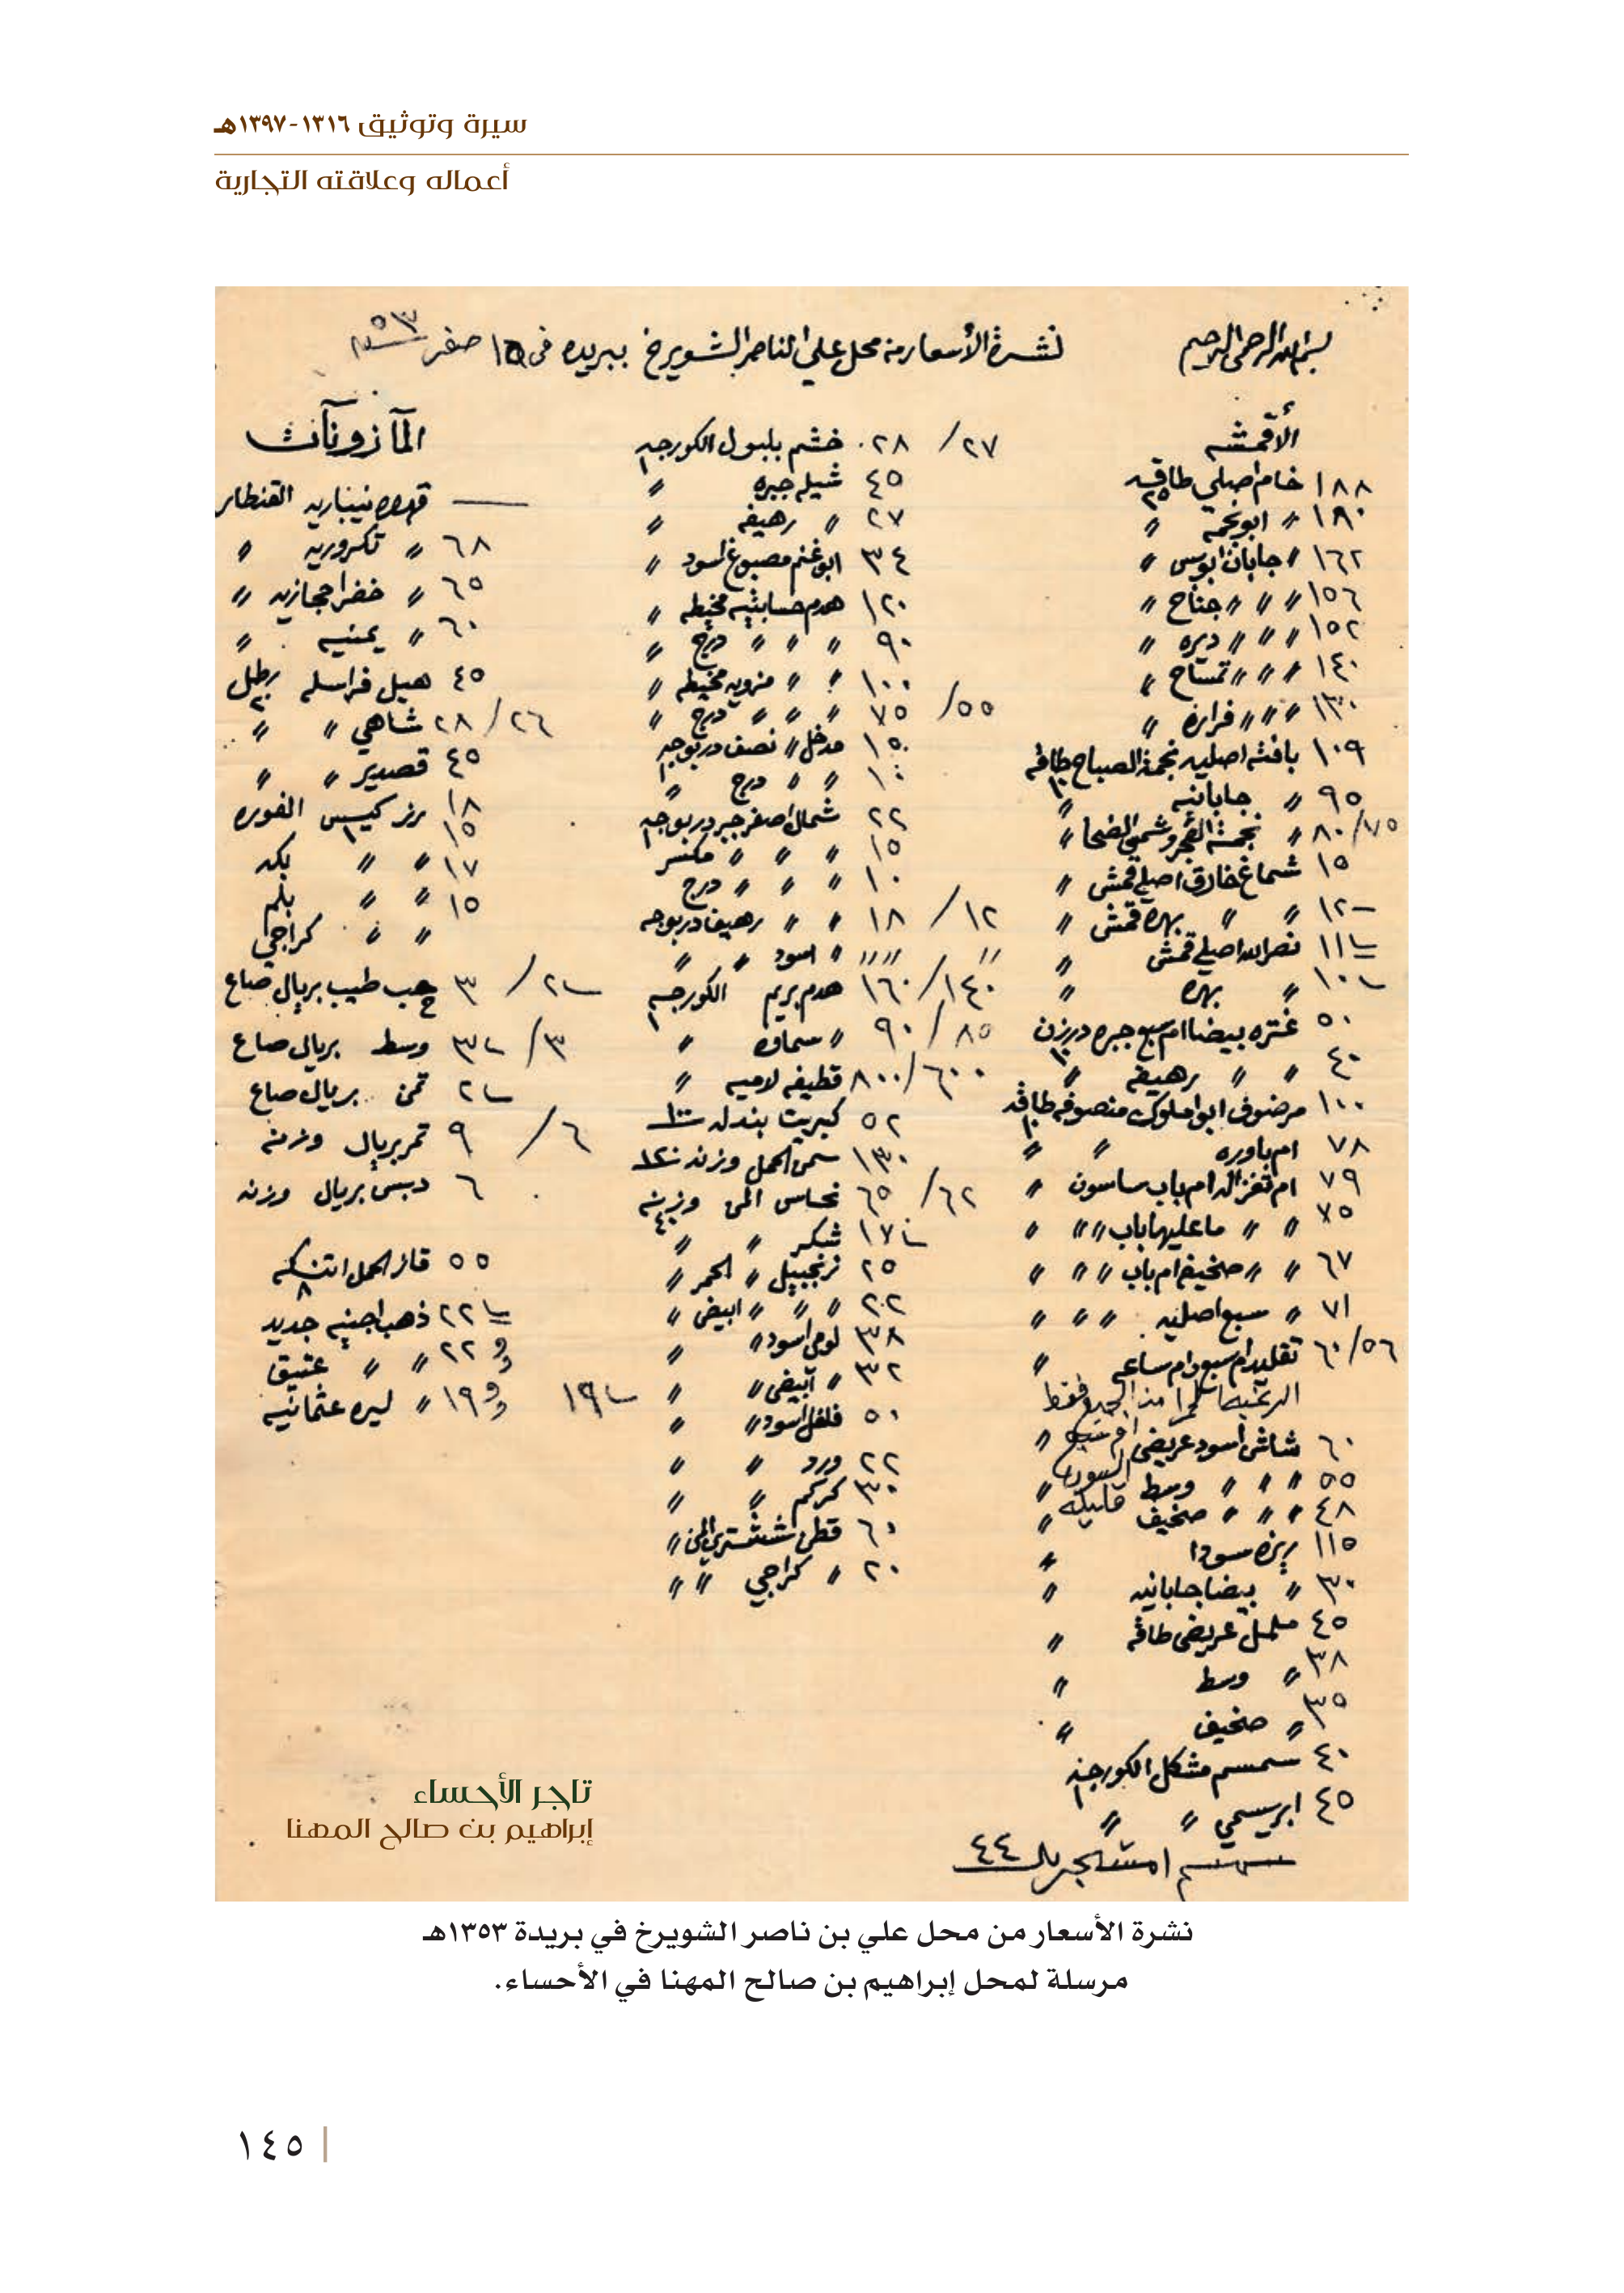 سيرة وتوثيق ١٣١٦-١٣٩٧هـ
أعماله وعلاقته التجارية
بسم الله الرحمن الرحيم
نشرة الأسعار من محل علي الناصر الشويرخ ببريده في ١٥ صفر ٥٣
الأقمشه
١٨٨ خام اصلي طاقه ٢٥
١٨٠ " ابو نجمه "
١٦٢ " جابان ابو بس "
١٥٦ " " " جناح "
١٥٢ " " " ديره "
١٤٠ " " " تمساح "
١٣٠ " " " فراره "
١٠٩ بافته اصليه نجمة الصباح طاقه
٩٥ " جابانيه "
٧٥/٨٠ " نجمة الفجر وشمس الضحا "
١٥ شماغ خارق اصلي قمش "
١٢ " " بهره قمش "
١١ نصر الله اصلي قمش "
١٠ " بهره "
٥٠ غتره بيضا ام سبع جبره درزن
٤٠ " " رهيفه "
١٠٠ مرضوف ابو املوك منصوفه طاقه
٧٨ ام باوره " "
٧٩ ام تغزاله ام باب ساسون "
٧٥ " " ما عليها باب " " "
٦٧ " " صخيفه ام باب " " "
٧١ " سبع اصليه " " "
٥٦/٦٠ تقليد ام سبع وام ساعه "
فقط
٦٠ شاش اسود عريض "
٥٥ " " " وسط "
٤٨ " " " صخيف "
قليله
١١٥ بزه سودا "
٣٠ " بيضا جابانيه "
٤٥ ململ عريض طاقه "
٣٨ " وسط "
٣٥ " صخيف "
٤٠ سمسم مشكل الكورجه
٤٥ ابريسمي " "
٤٤
٢٧/٢٨ خشم بلبول الكورجه ١
٤٥ شيله جبره "
٢٧ " رهيفه "
٣٤ ابو غنم مصبوغ اسود "
١٢٠ هدم حسابيه مخيطه "
٩٠ " " " درج "
١٠٠ " " مزويه مخيطه "
٥٥/٧٥ " " " درج "
١٥ مدخل " نصف دربوجه
١٠ " " درج "
٢٢ شمال اصفر جبر دربوجه
١٥ " " " مكسر
١٠ " " " درج
١٢/١٨ " " رهيف دربوجه
" " " " اسود " "
١٤٠/١٦٠ هدم بريم الكورجه ١
٨٥/٩٠ " سماوه "
٦٠٠/٨٠٠ قطيفه لاميه "
٥٢ كبريت بندله
١٣٠ سمن الحمل وزنه
٦٢/٦٥ نحاس المن وزنه ٤٠
١٧ شكر " "
٢٥ زنجبيل " احمر "
٢٠٢ " " " ابيض "
٣٨ لومي اسود " "
٣٢ " ابيض " "
٥٠ فلفل اسود " "
٢٢ ورد " "
٣٠ كركم " "
٦٠ قطن ششتري المن "
٢٠ " كراجي " "
المآزونآت
— قهوه نيباريه القنطار
٦٨ " تكروريه "
٦٥ " خضرا حجازيه "
٦٠ " يمنيه "
٤٥ هيل فراسله رطل
٢٦/٢٨ شاهي " "
٤٥ قصدير " "
١٨ رز كيس الفوره
١٥
١٧ " " بكه
١٥ " " بلم
" " كراجي
٢/٣ حب طيب بريال صاع
٣/٣ وسط بريال صاع
٢ تمن بريال صاع
٦/٩ تمر بريال وزنه
٦ دبس بريال وزنه
٥٥ قاز الحمل اتنكه ٨
٢٢ ذهب اجنيه جديد
٢٢ " " عتيق
١٩ ١٩ " ليره عثمانيه
تاجر الأحساء
إبراهيم بن صالح المهنا
نشرة الأسعار من محل علي بن ناصر الشويرخ في بريدة ١٣٥٣هـ
مرسلة لمحل إبراهيم بن صالح المهنا في الأحساء.
١٤٥